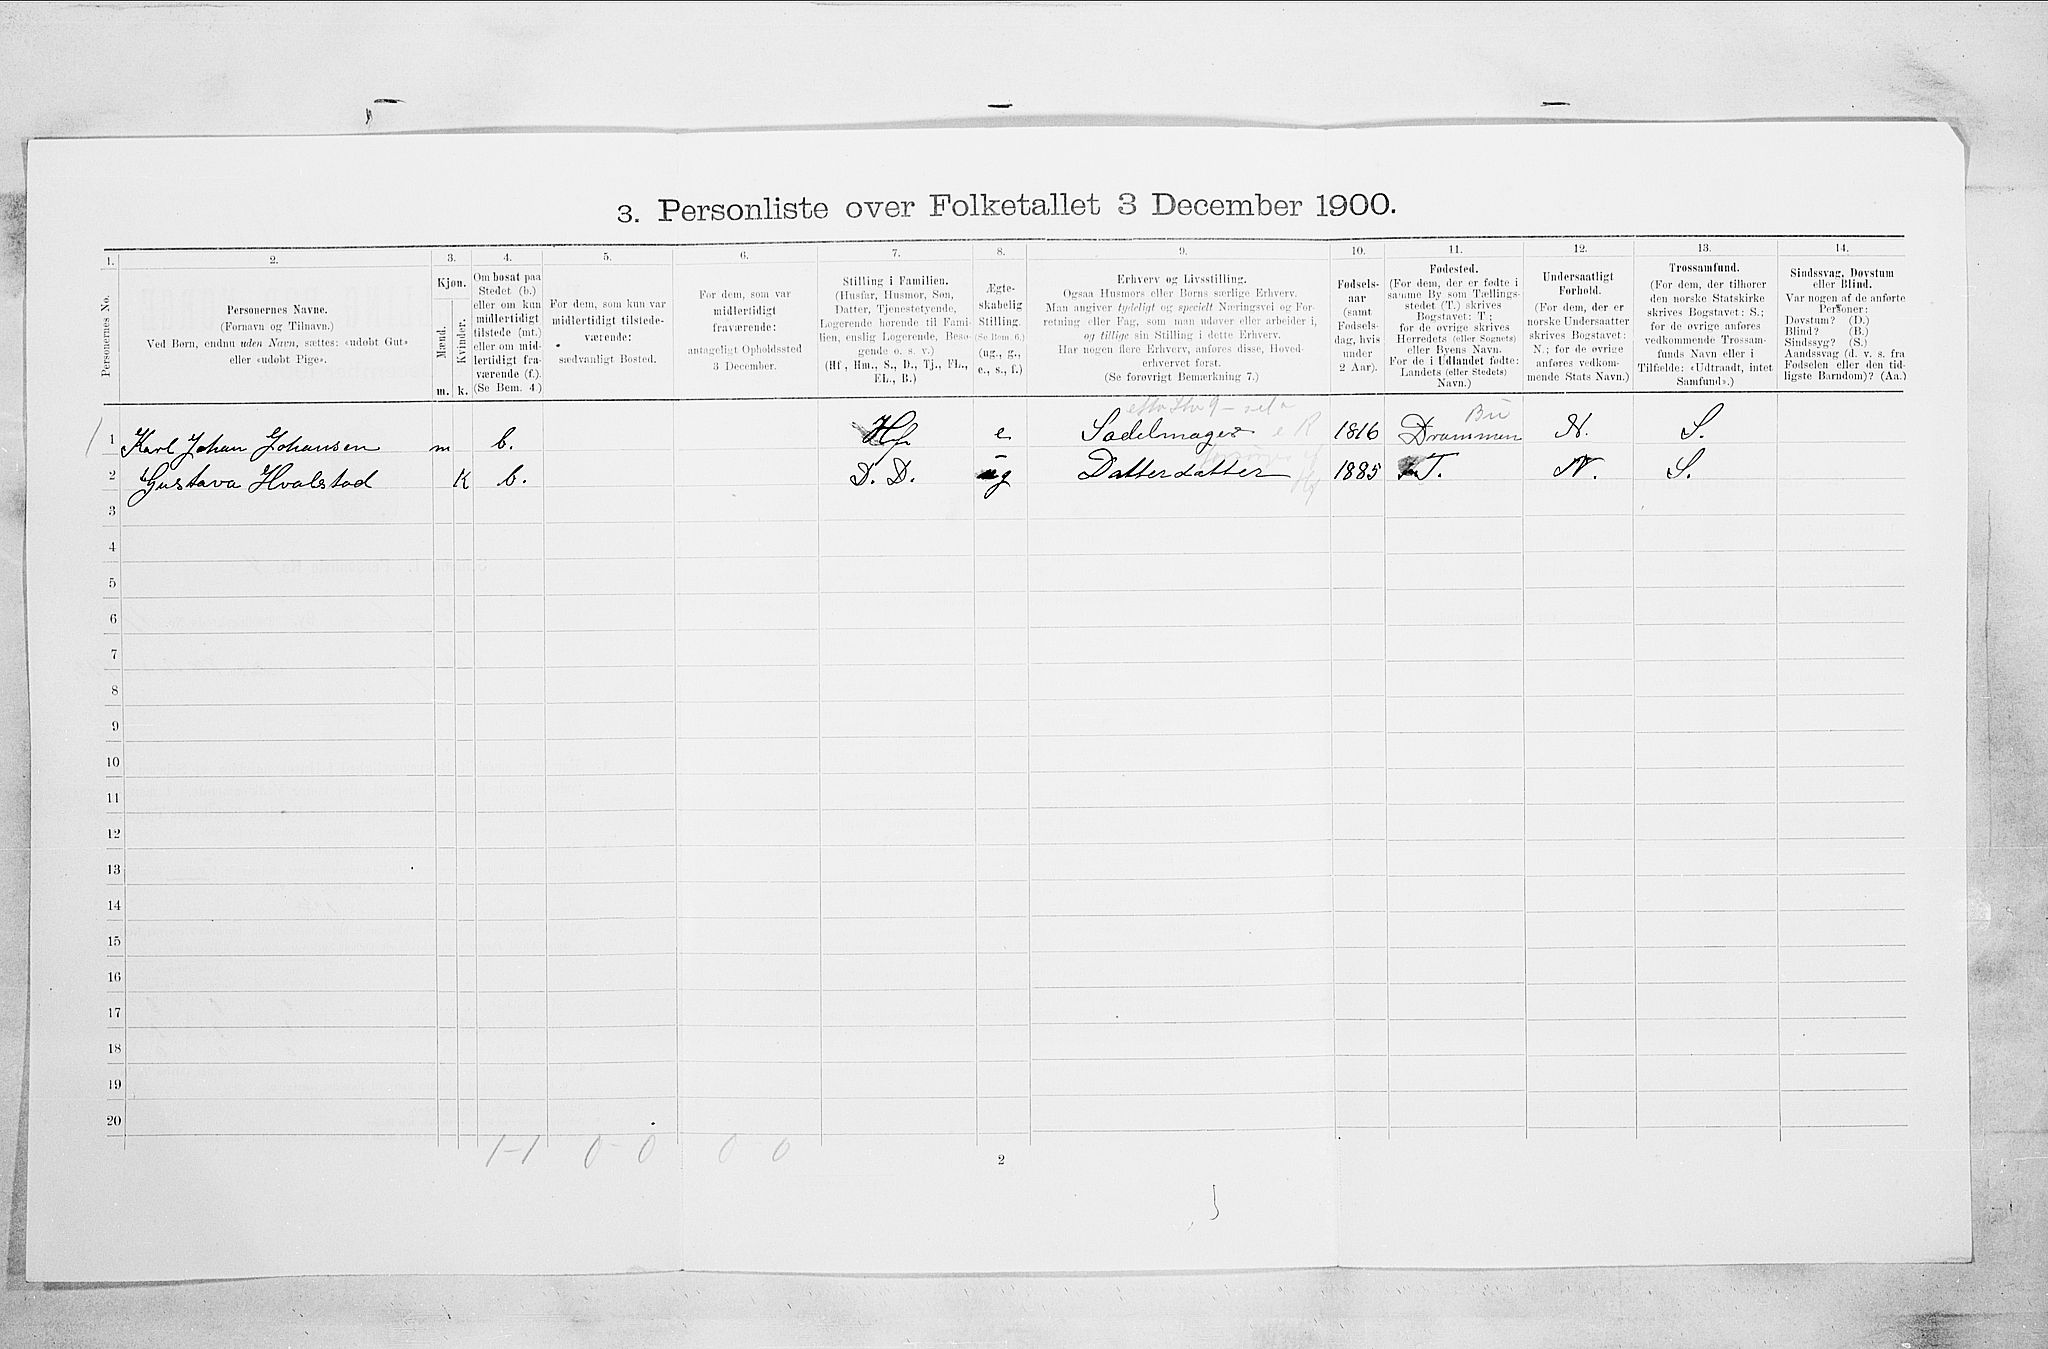 3. Personliste over Folketallet 3 December 1900.
1. 2. 3. 4. 5. 6. 7. 8. 9. 10. 11. 12. 13. 14.
Personernes No.
Personernes Navne.
(Fornavn og Tilnavn.)
Ved Børn, endnu uden Navn, sættes: «udøbt Gut»
eller «udøbt Pige».
Kjøn.
Mænd.
Kvinder.
m. k.
Om bosat paa
Stedet (b.)
eller om kun
midlertidigt
tilstede (mt.)
eller om mid-
lertidigt fra-
værende (f.).
(Se Bem. 4.)
For dem, som kun var
midlertidigt tilstede-
værende:
sædvanligt Bosted.
For dem, som var
midlertidigt
fraværende:
antageligt Opholdssted
3 December.
Stilling i Familien.
(Husfar, Husmor, Søn,
Datter, Tjenestetyende,
Logerende hørende til Fami-
lien, enslig Logerende, Besø-
gende o. s. v.)
(Hf., Hm., S., D., Tj., FL.,
EL., B.)
Ægte-
skabelig
Stilling.
(Se Bem. 6.)
(ug., g.,
e., s., f.)
Erhverv og Livsstilling.
Ogsaa Husmors eller Børns særlige Erhverv.
Man angiver tydeligt og specielt Næringsvei og For-
retning eller Fag, som man udøver eller arbeider i,
og tillige sin Stilling i dette Erhverv.
Har nogen flere Erhverv, anføres disse, Hoved-
erhvervet først.
(Se forøvrigt Bemærkning 7.)
Fødsels-
aar
(samt
Fødsels-
dag, hvis
under
2 Aar).
Fødested.
(For dem, der er fødte i
samme By som Tællings-
stedet (T.) skrives
Bogstavet: T;
for de øvrige skrives
Herredets (eller Sognets)
eller Byens Navn.
For de i Udlandet fødte:
Landets (eller Stedets)
Navn.)
Undersaatligt
Forhold.
(For dem, der er
norske Undersaatter
skrives Bogstavet:
N.; for de øvrige
anføres vedkom-
mende Stats Navn.)
Trossamfund.
(For dem, der tilhører
den norske Statskirke
skrives Bogstavet: S.;
for de øvrige anføres
vedkommende Trossam-
funds Navn eller i
Tilfælde: «Udtraadt, intet
Samfund».)
Sindssvag, Døvstum
eller Blind.
Var nogen af de anførte
Personer:
Døvstum? (D.)
Blind? (B.)
Sindssyg? (S.)
Aandssvag (d. v. s. fra
Fødselen eller den tid-
ligste Barndom)? (Aa.)
1 Karl Johan Johansen m b. Hf e Sadelmager 1816 Drammen N. S.
2 Gustava Hvalstad K b. D. D. ug Datterdatter 1885 T. N. S.
3
4
5
6
7
8
9
10
11
12
13
14
15
16
17
18
19
20
1-1 0-0 0-0
2